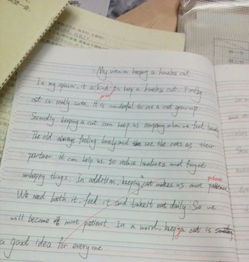 My view on keeping a homeless cat
In my opinion, it is kind to keep a homeless cat. Firstly
cat is really cute. It is wonderful to see a cat grow up.
Secondly keeping a cat can keep us company when we feel lonely.
The old always feeling lonely and see the cats as their
partner. It can help us to reduce loneliness and forget
unhappy things. In addition, keeping cat makes us more patience
We need bath it, feed it and take it out daily. So we
will become more patient. In a word, keeping a cat is
a good idea for everyone